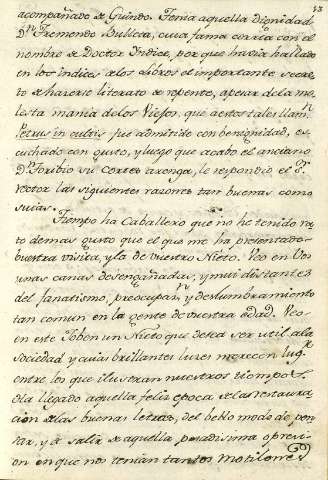 53
acompañado de Guindo. Tenia aquella Dignidad
Dn. Tremendo Bullicia, cuia fama corria con el
nombre de Doctor Indice, por que havia hallado
en los indices de los libros el importante secre
to de hacerse literato de repente, apesar de la mo
lesta mania de los Viejos, que a estos tales llamn.
Petrus in cultis fue admitido con benignidad, es
cuchado con gusto, y luego que acabo el anciano
Dn. Toribio su cortes arenga, le respondio el Sr.
rector las siguientes razones tan buenas como
suias.
Tiempo ha Caballero que no he tenido ra
to de mas gusto que el que me ha presentado
vuestra visita, y la de vuestro Nieto. Veo en Vos
unas canas desengañadas, y mui distantes
del fanatismo, preocupan. y deslumbramiento
tan comun en la gente de vuestra edad. Veo
en este Joben un Nieto que desea ser util a la
sociedad y cuias brillantes luces merecen lugr.
entre los que ilustran nuestros tiempos.
Ha llegado aquella feliz epoca de la restaura
cion de las buenas letras, del bello modo de pen
sar, y de salir de aquella pesadisima opresi
on en que nos tenian tantos Motilones